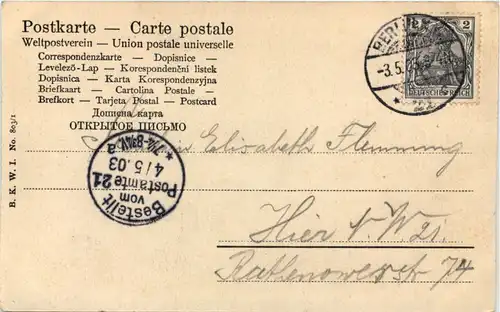 Postkarte — Carte postale
Weltpostverein — Union postale universelle
Correspondenzkarte — Dopisnice —
Levelező-Lap — Korespondenční listek
Dopisnica — Karta Korespondenzyjna
Briefkaart — Cartolina Postale —
Brefkort — Tarjeta Postal — Postcard
Дописна карта
ОТКРЫТОЕ ПИСЬМО
B. K. W. I. No. 803/1
BERLIN
-3.5.03
2 2
DEUTSCHES REICH
Bestellt
vom
Postamte 21
4/5.03
Elisabeth Flemming
Hier N.W. 21.
Rathenowerstr 74